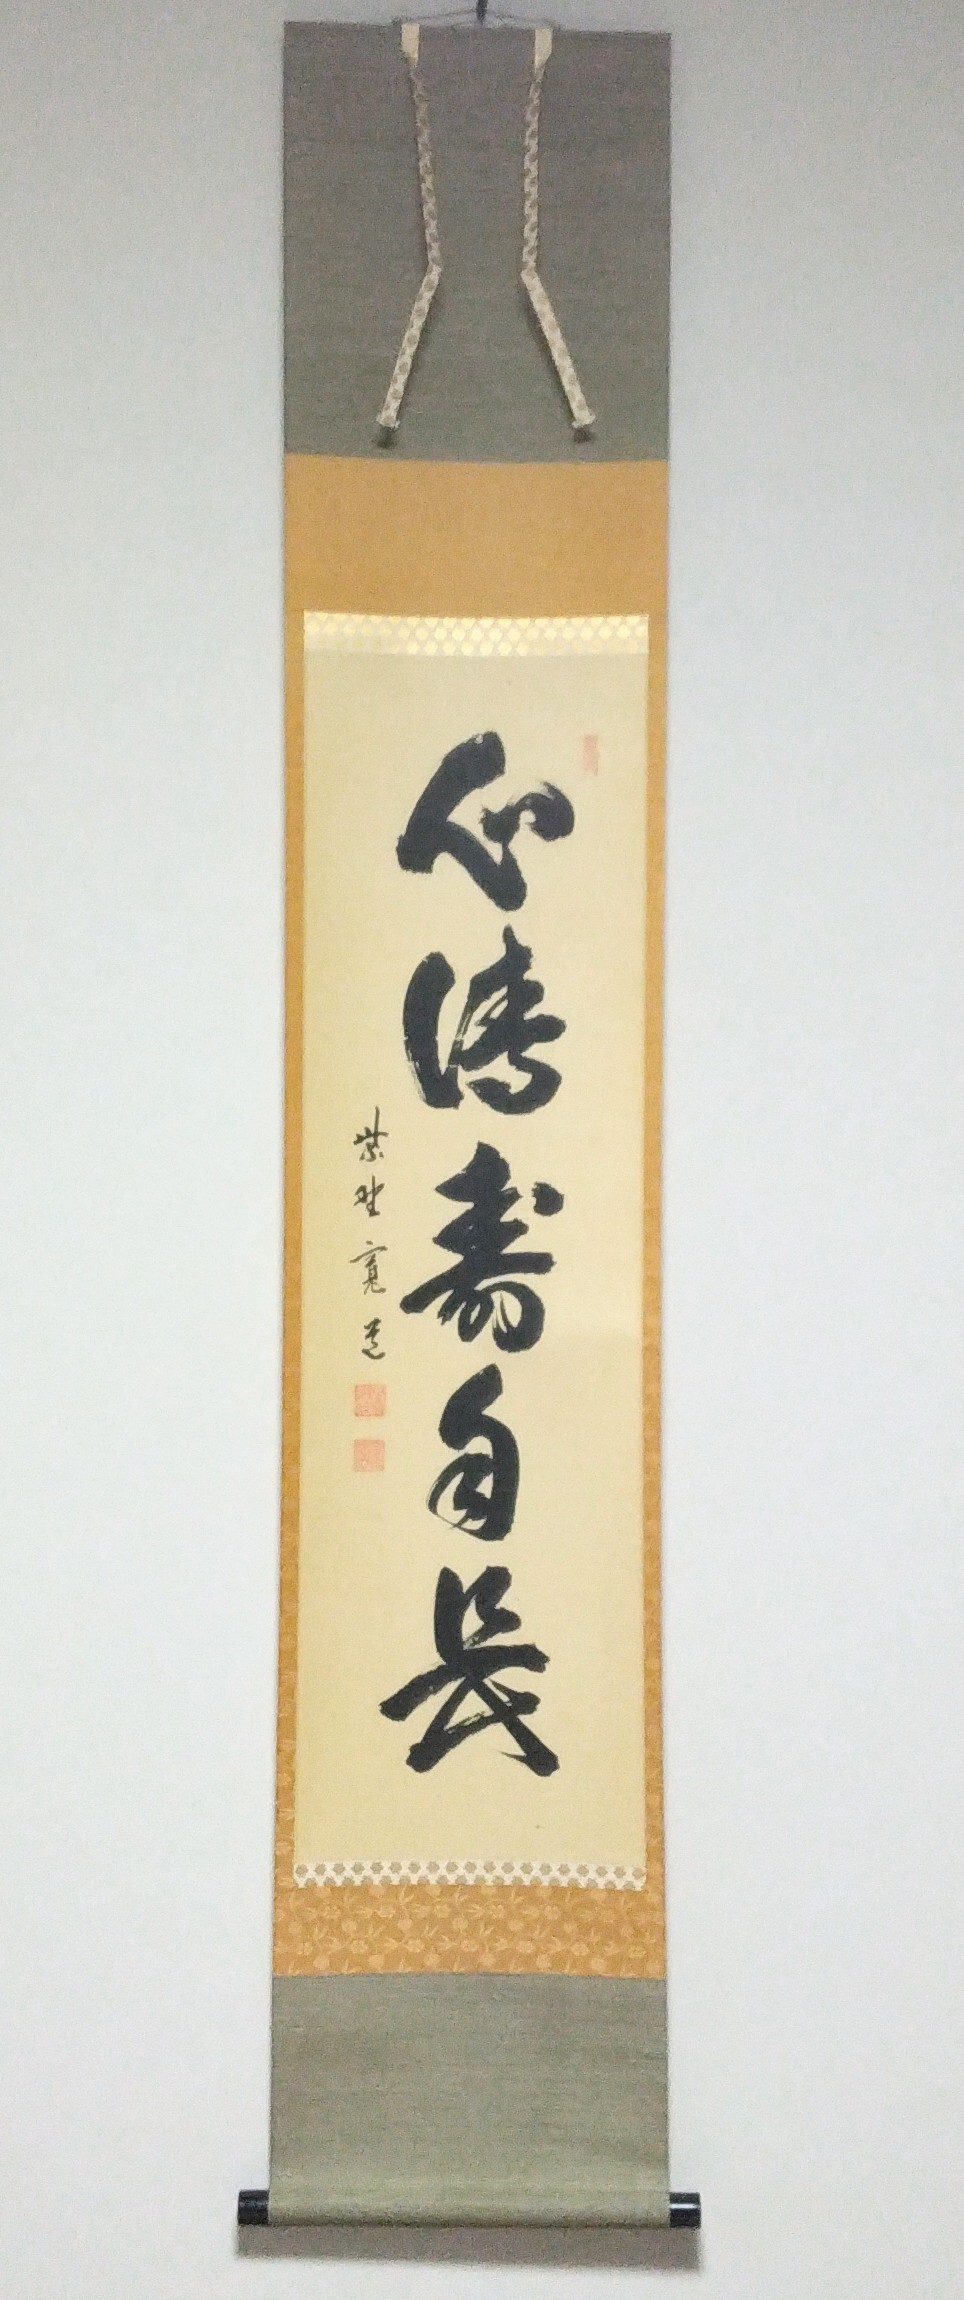 心清壽自長
紫野 寛道